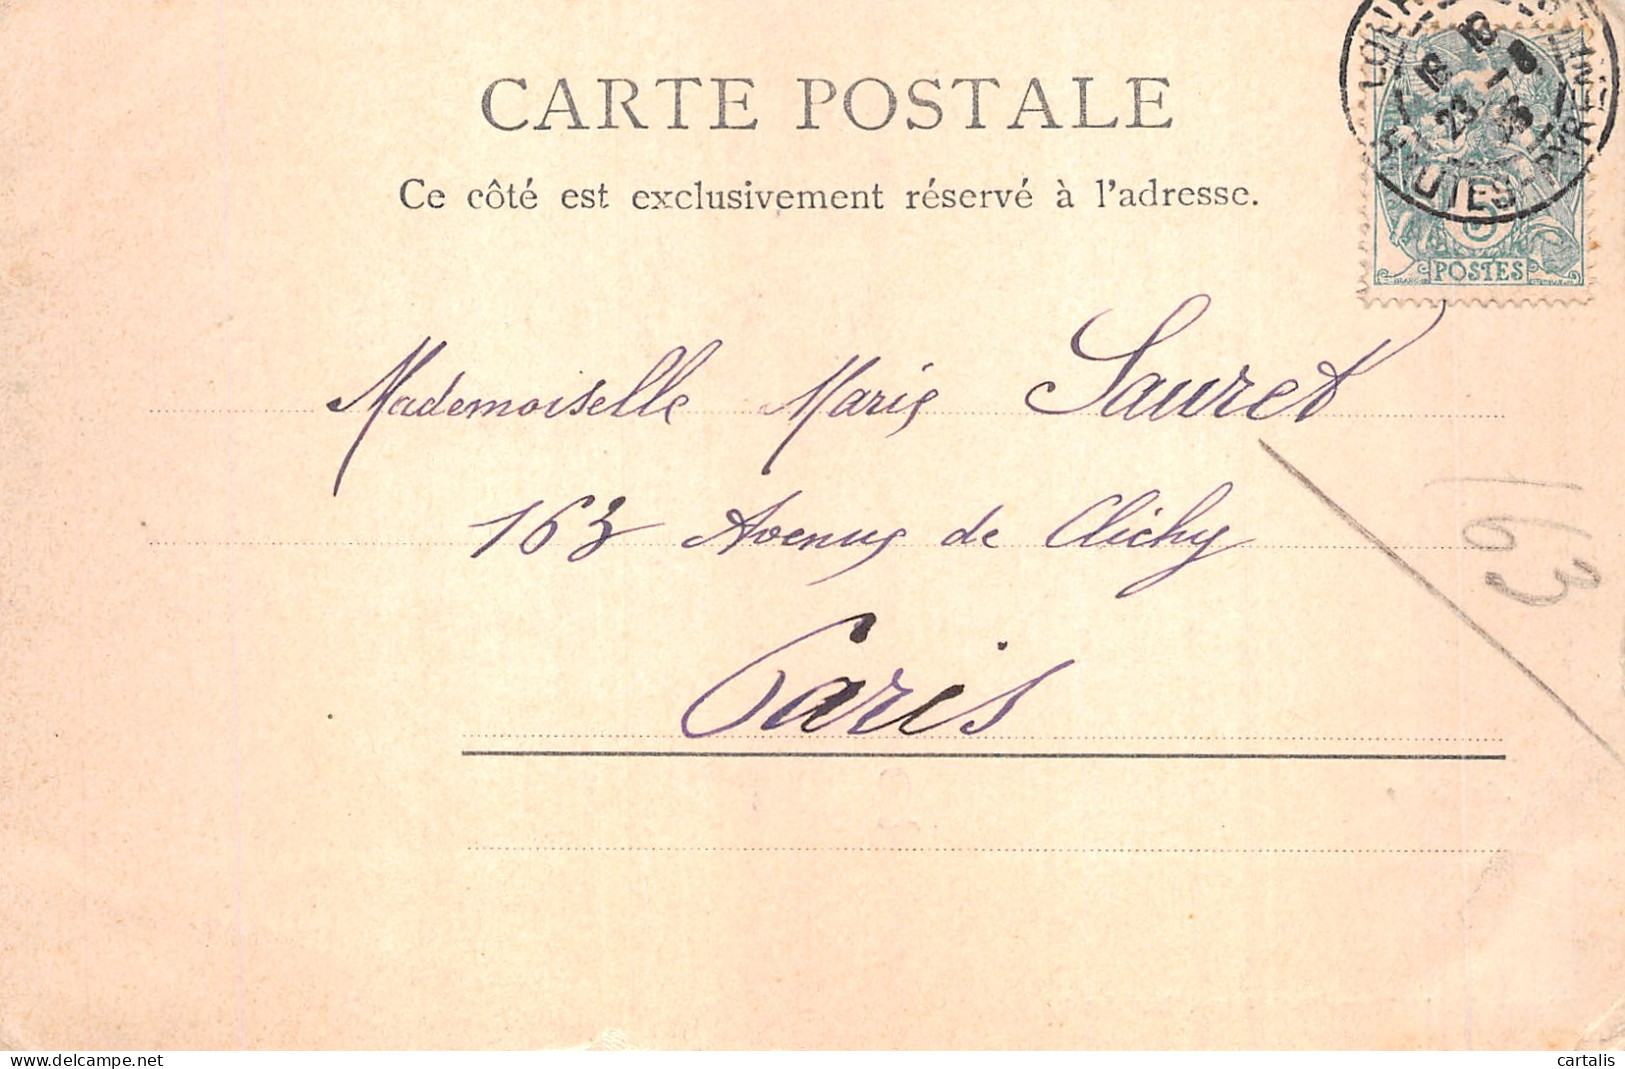 CARTE POSTALE
Ce côté est exclusivement réservé à l'adresse.
23
HAUTES-PYRENEES
5
POSTES
Mademoiselle Marie Sauret
163 Avenue de Clichy
Paris
163
delcampe.net
cartalis